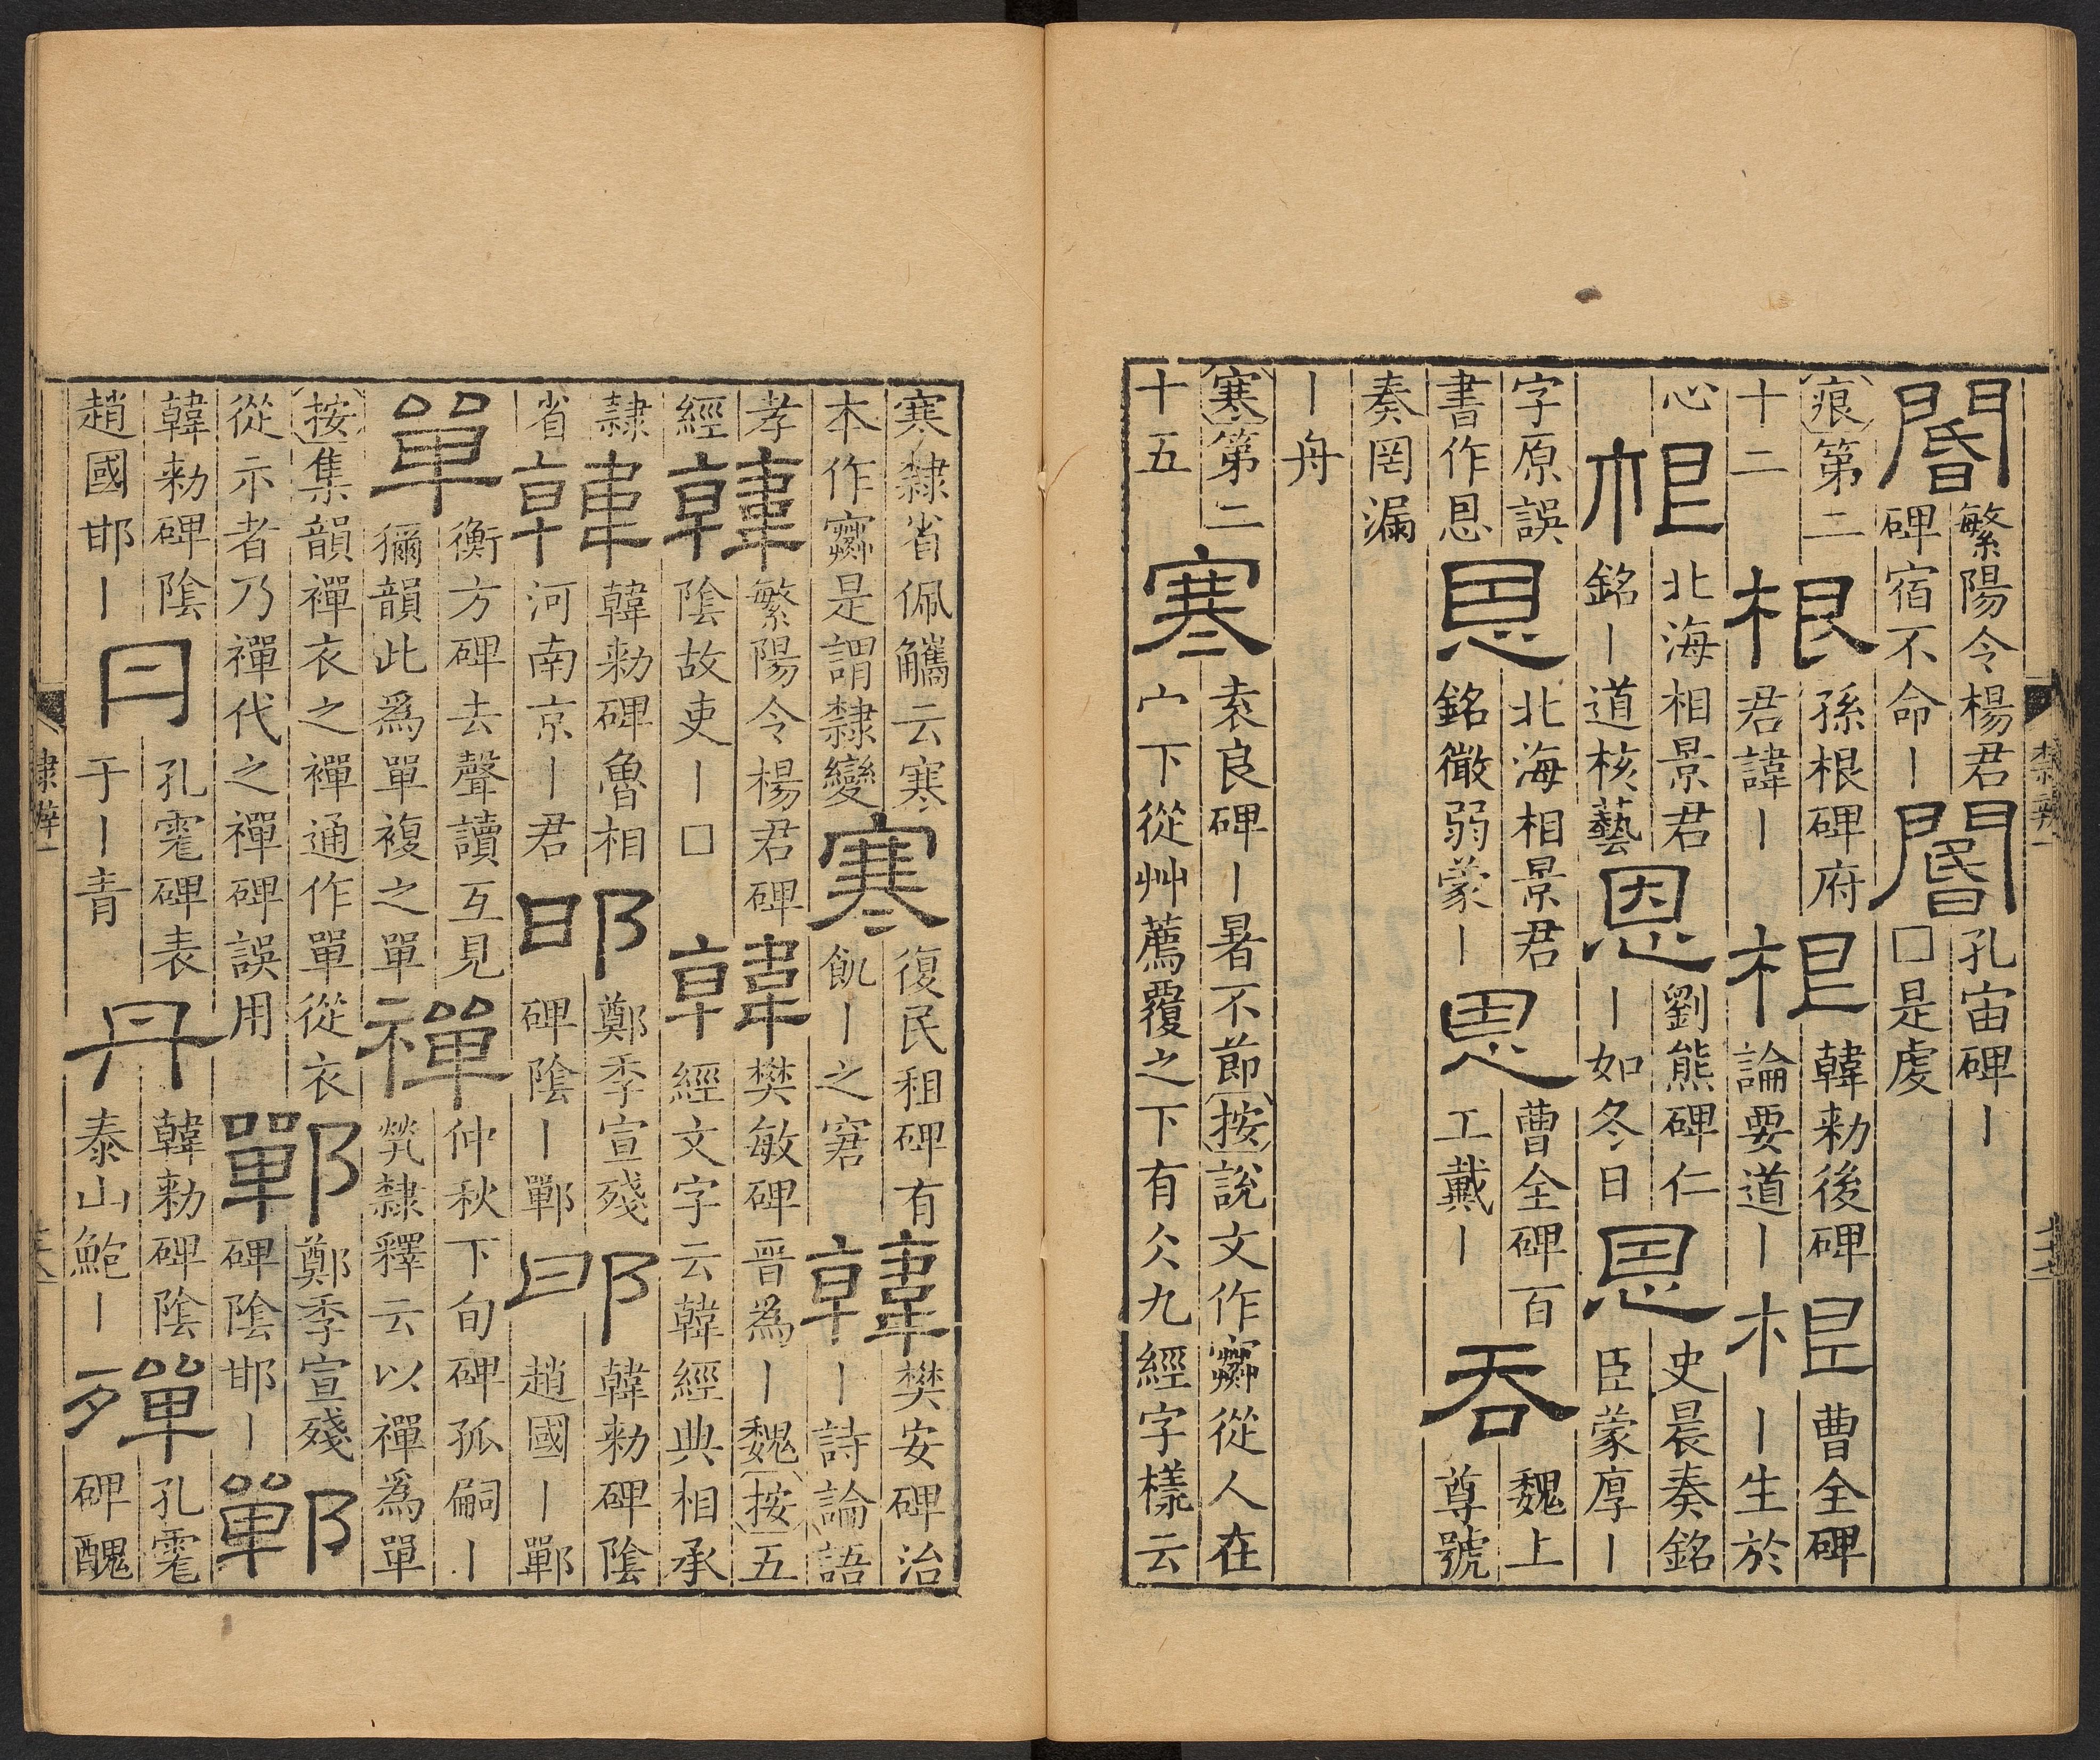 閽
繁陽令楊君
碑宿不命丨
閽
孔宙碑丨
□是虔
痕第二
十二
根
孫根碑府
君諱丨
根
韓勑後碑
論要道丨
根
曹全碑
丨生於
心
根
北海相景君
銘丨道核藝
恩
劉熊碑仁
丨如冬日
恩
史晨奏銘
臣蒙厚丨
字原誤
書作恩
恩
北海相景君
銘徽弱蒙丨
恩
曹全碑百
工戴丨
吞
魏上
尊號
奏罔漏
丨舟
寒第二
十五
寒
袁良碑丨暑不節按說文作𡫾從人在
宀下從艸薦覆之下有仌九經字樣云
隸辨一
寒隸省佩觿云寒
本作𡫾是謂隸變
寒
復民租碑有
飢丨之窘
韓
樊安碑治
丨詩論語
孝
經
韓
繁陽令楊君碑
陰故吏丨□
韓
樊敏碑晋為丨魏按五
經文字云韓經典相承
隸
省
韓
韓勑碑魯相
河南京丨君
邯
鄭季宣殘
碑陰丨鄲
邯
韓勑碑陰
趙國丨鄲
單
衡方碑去聲讀互見
獮韻此爲單複之單
禪
仲秋下旬碑孤嗣丨
煢隸釋云以禪爲單
按集韻襌衣之襌通作單從衣
從示者乃禪代之禪碑誤用
鄲
鄭季宣殘
碑陰邯丨
鄲
韓勑碑陰
趙國邯丨
丹
孔 碑表
于丨青
丹
韓勑碑陰
泰山鮑丨
殫
孔
碑醜
隸辨一